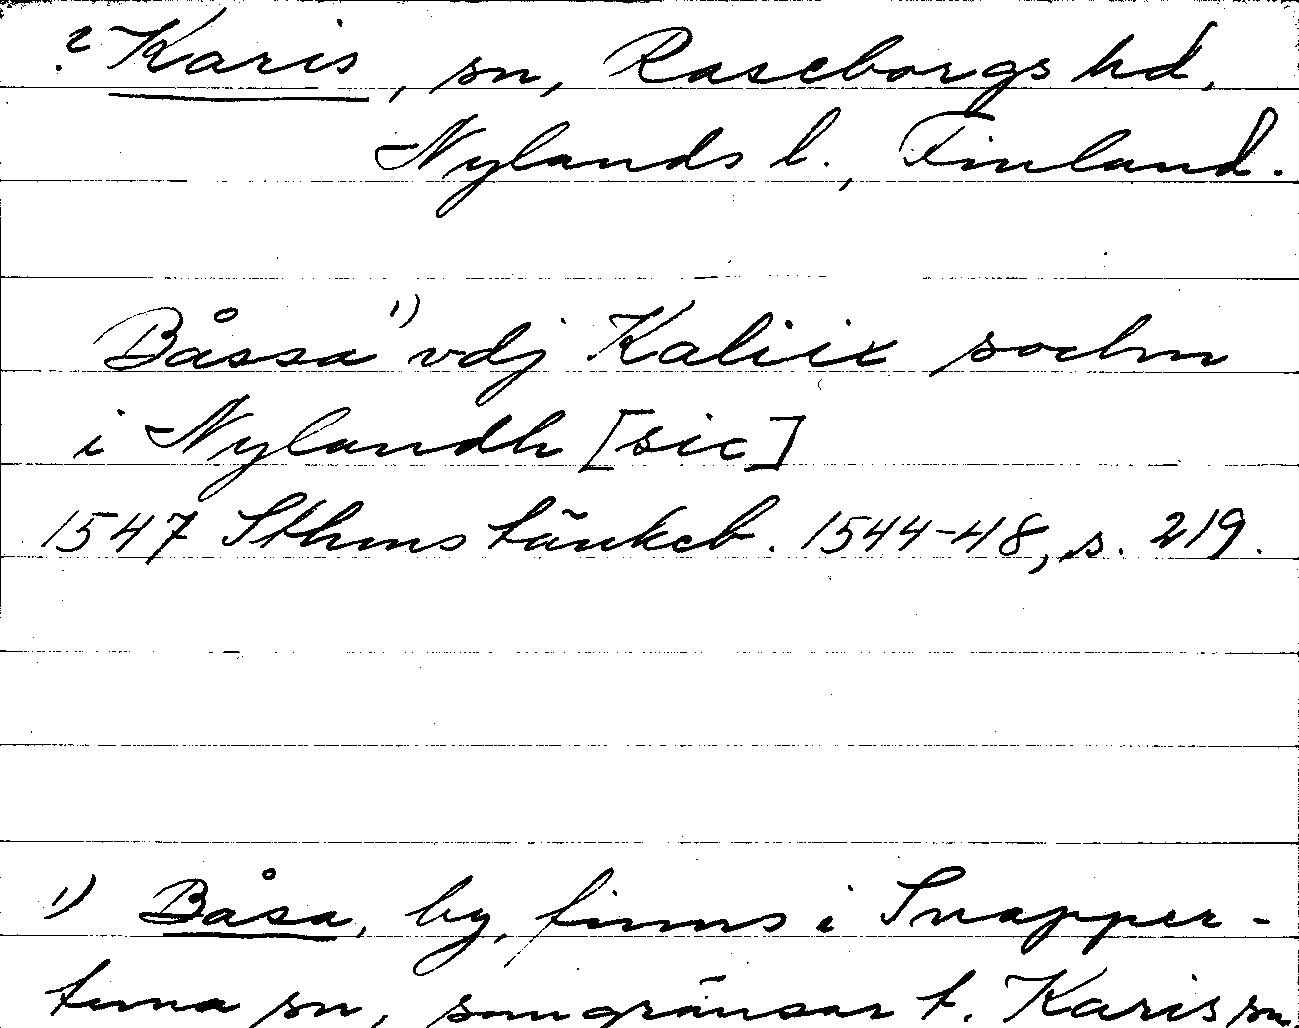 ? Karis, sn, Raseborgs hd,
Nylands l., Finland.
Båssa 1) vdj Kaliix sochn
i Nylandh [sic]
1547 Sthms tänkeb. 1544-48, s. 219.
1) Båsa, by, finns i Snapper-
tuna sn, som gränsar t. Karis sn